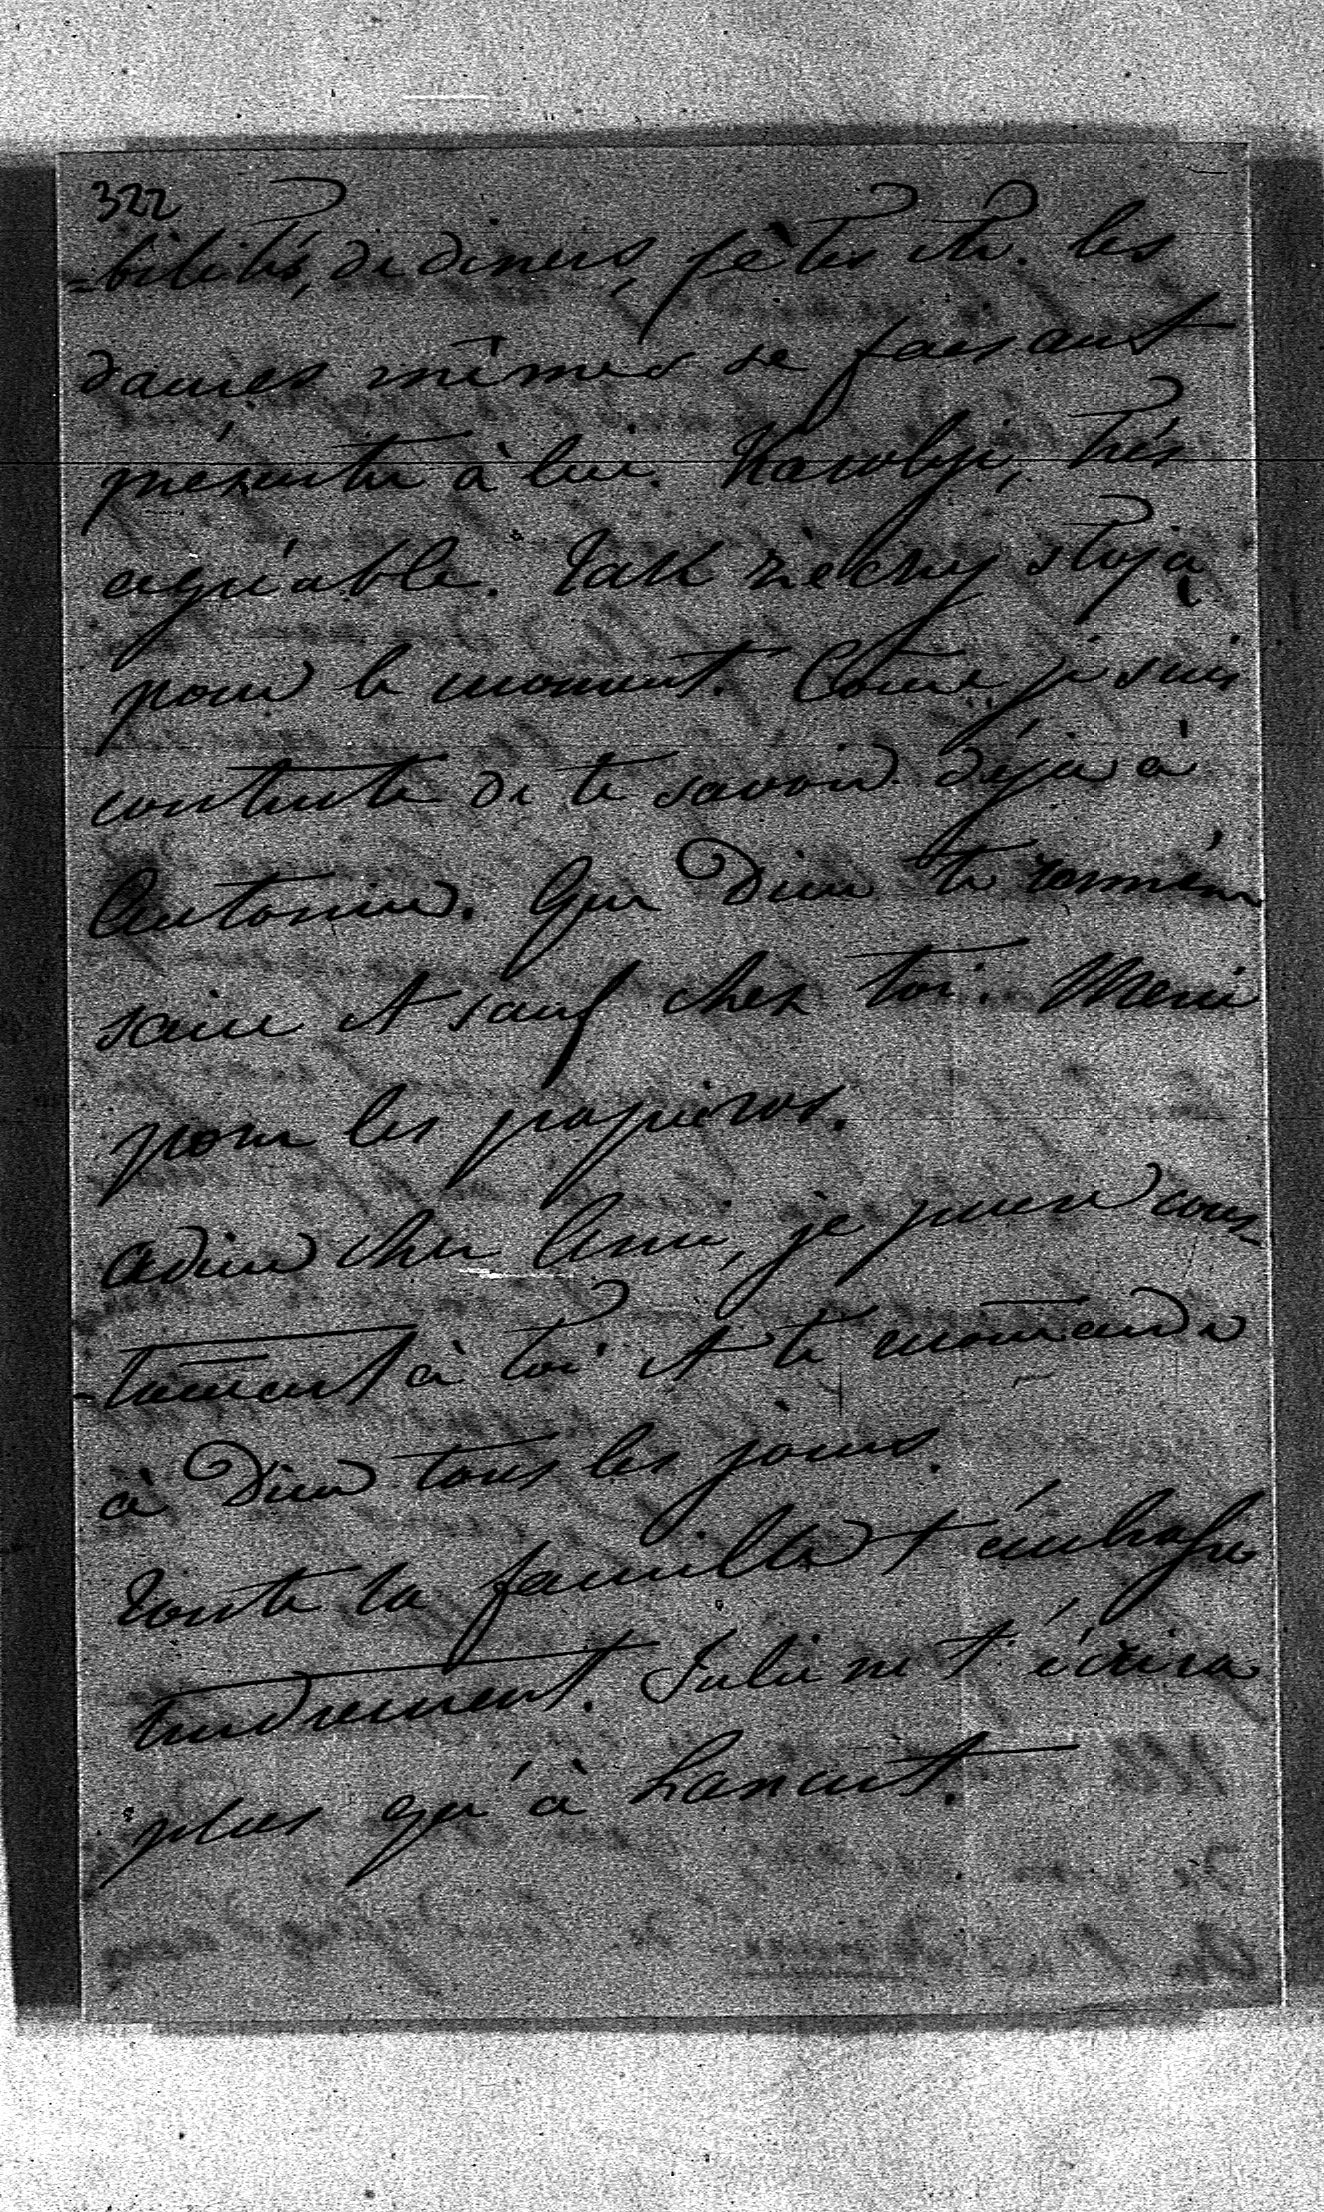 322
=bilités, de diners, fêtes etc. les
dames mêmes se faisant
présenter à lui. Karolyi, très
agréable. Tak rzeczy stoją
pour le moment. Come je suis
contente de te savoir déjà à
Antonin. Que Dieu te ramène
sain et sauf chez toi. Merci
pour les papieros.
Adieu cher Ami, je pense cons=
=tament à toi et te recomande
à Dieu tous les jours.
Toute la famille t'embrasse
tendrement. Julie ne t'écrira
plus qu'à Lancut.